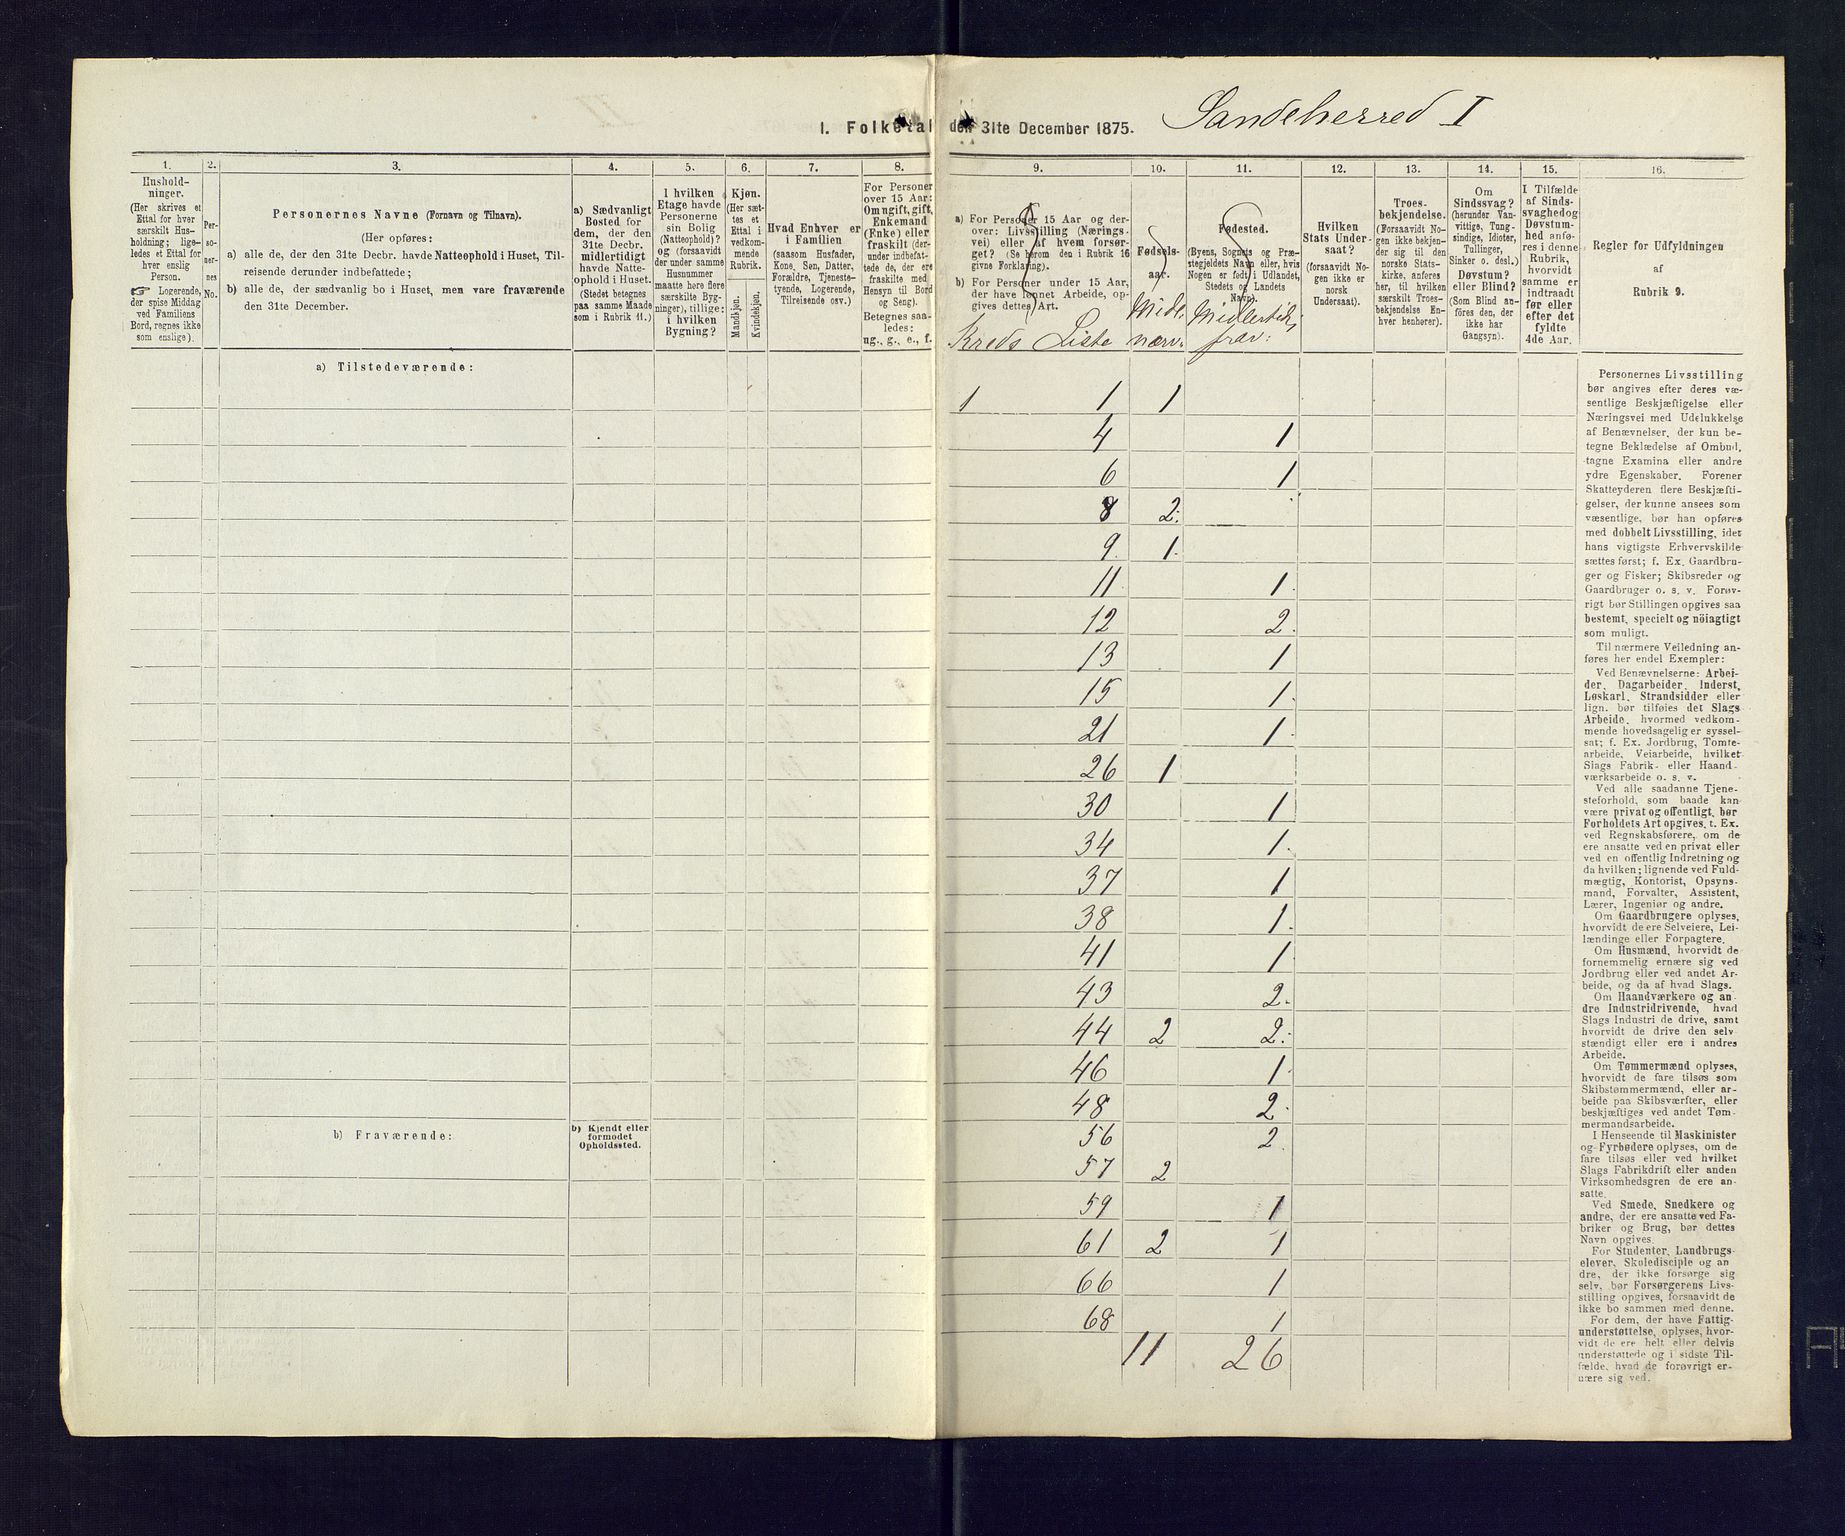 1. Folketal den 31te December 1875. Sandeherred I
1.
2.
3.
4.
5.
6.
7.
8.
9.
10.
11.
12.
13.
14.
15.
16.
Hushold-
ninger.
(Her skrives et
Ettal for hver
særskilt Hus-
holdning; lige-
ledes et Ettal for
hver enslig
Person.
☞ Logerende,
der spise Middag
ved Familiens
Bord, regnes ikke
som enslige).
Per-
so-
ner-
nes
No.
Personernes Navne (Fornavn og Tilnavn).
(Her opføres:
a) alle de, der den 31te Decbr. havde Natteophold i Huset, Til-
reisende derunder indbefattede;
b) alle de, der sædvanlig bo i Huset, men vare fraværende
den 31te December.
a) Sædvanligt
Bosted for
dem, der den
31te Decbr.
midlertidigt
havde Natte-
ophold i Huset.
(Stedet betegnes
paa samme Maade
som i Rubrik 11.)
I hvilken
Etage havde
Personerne
sin Bolig
(Natteophold)?
og (forsaavidt
der under samme
Husnummer
maatte høre flere
særskilte Byg-
ninger), tillige:
i hvilken
Bygning?
Kjøn.
(Her sæt-
tes et
Ettal i
vedkom-
mende
Rubrik.
Mandkjøn.
Kvindekjøn.
Hvad Enhver er
i Familien
(saasom Husfader,
Kone, Søn, Datter,
Forældre, Tjeneste-
tyende, Logerende,
Tilreisende osv.)
For Personer
over 15 Aar:
Om ugift, gift,
Enkemand
(Enke) eller
fraskilt (der-
under indbefat-
tede de, der ere
fraskilte med
Hensyn til Bord
og Seng).
Betegnes saa-
ledes:
ug., g., e., f.
a) For Personer 15 Aar og der-
over: Livsstilling (Nærings-
vei) eller af hvem forsør-
get? (Se herom den i Rubrik 16
givne Forklaring).
b) For Personer under 15 Aar,
der have lønnet Arbeide, op-
gives dettes Art.
Fødsels-
aar.
Fødested.
(Byens, Sognets og Præ-
stegjeldets Navn eller, hvis
Nogen er født i Udlandet,
Stedets og Landets
Navn).
Hvilken
Stats Under-
saat?
(forsaavidt No-
gen ikke er
norsk
Undersaat).
Troes-
bekjendelse.
(Forsaavidt No-
gen ikke bekjen-
der sig til den
norske Stats-
kirke, anføres
her, til hvilken
særskilt Troes-
bekjendelse En-
hver henhører).
Om
Sindssvag?
(herunder Van-
vittige, Tung-
sindige, Idioter,
Tullinger,
Sinker o. desl.)
Døvstum?
eller Blind?
(Som Blind an-
føres den, der
ikke har
Gangsyn).
I Tilfælde
af Sinds-
svaghed og
Døvstum-
hed anfø-
res i denne
Rubrik,
hvorvidt
samme er
indtraadt
før eller
efter det
fyldte
4de Aar.
Regler for Udfyldningen
af
Rubrik 9.
Kreds Liste Midl. nærv. Midlertidig frav:
a) Tilstedeværende:
1 1 1
4 1
6 1
8 2.
9 1.
11 1.
12 2.
13 1
15 1.
21 1.
26 1
30 1
34 1.
37 1
38 1.
41 1.
43 2.
44 2 2.
46 1.
48 2.
b) Fraværende:
b) Kjendt eller
formodet
Opholdssted.
56 2.
57 2
59 1
61 2 1
66 1
68 1
11 26
Personernes Livsstilling
bør angives efter deres væ-
sentlige Beskjæftigelse eller
Næringsvei med Udelukkelse
af Benævnelser, der kun be-
tegne Beklædelse af Ombud,
tagne Examina eller andre
ydre Egenskaber. Forener
Skatteyderen flere Beskjæfti-
gelser, der kunne ansees som
væsentlige, bør han opføres
med dobbelt Livsstilling, idet
hans vigtigste Erhvervskilde
sættes først; f. Ex. Gaardbru-
ger og Fisker; Skibsreder og
Gaardbruger o. s. v. Forøv-
rigt bør Stillingen opgives saa
bestemt, specielt og nöiagtigt
som muligt.
Til nærmere Veiledning an-
føres her endel Exempler:
Ved Benævnelserne: Arbei-
der, Dagarbeider, Inderst,
Løskarl, Strandsidder eller
lign. bør tilføies det Slags
Arbeide, hvormed vedkom-
mende hovedsagelig er syssel-
sat; f. Ex. Jordbrug, Tomte-
arbeide, Veiarbeide, hvilket
Slags Fabrik- eller Haand-
værksarbeide o. s. v.
Ved alle saadanne Tjene-
steforhold, som baade kan
være privat og offentligt, bør
Forholdets Art opgives, t. Ex.
ved Regnskabsførere, om de
ere ansatte ved en privat eller
ved en offentlig Indretning og
da hvilken; lignende ved Fuld-
mægtig, Kontorist, Opsyns-
mand, Forvalter, Assistent,
Lærer, Ingeniør og andre.
Om Gaardbrugere oplyses,
hvorvidt de ere Selveiere, Lei-
lændinge eller Forpagtere.
Om Husmænd, hvorvidt de
fornemmelig ernære sig ved
Jordbrug eller ved andet Ar-
beide, og da af hvad Slags.
Om Haandværkere og an
dre Industridrivende, hvad
Slags Industri de drive, samt
hvorvidt de drive den selv
stændigt eller ere i andres
Arbeide.
Om Tømmermænd oplyses,
hvorvidt de fare tilsøs som
Skibstømmermænd, eller ar-
beide paa Skibsværfter, eller
beskjæftiges ved andet Tøm-
mermandsarbeide.
I Henseende til Maskinister
og Fyrbødere oplyses, om de
fare tilsøs eller ved hvilket
Slags Fabrikdrift eller anden
Virksomhedsgren de ere an-
satte.
Ved Smede, Snedkere og
andre, der ere ansatte ved Fa-
briker og Brug, bør dettes
Navn opgives.
For Studenter, Landbrugs
elever, Skoledisciple og an
dre, der ikke forsørge sig
selv, bør Forsørgerens Livs-
stilling opgives, forsaavidt de
ikke bo sammen med denne.
For dem, der have Fattig-
understøttelse, oplyses, hvor-
vidt de ere helt eller delvis
understøttede og i sidste Til-
fælde, hvad de forøvrigt er-
nære sig ved.